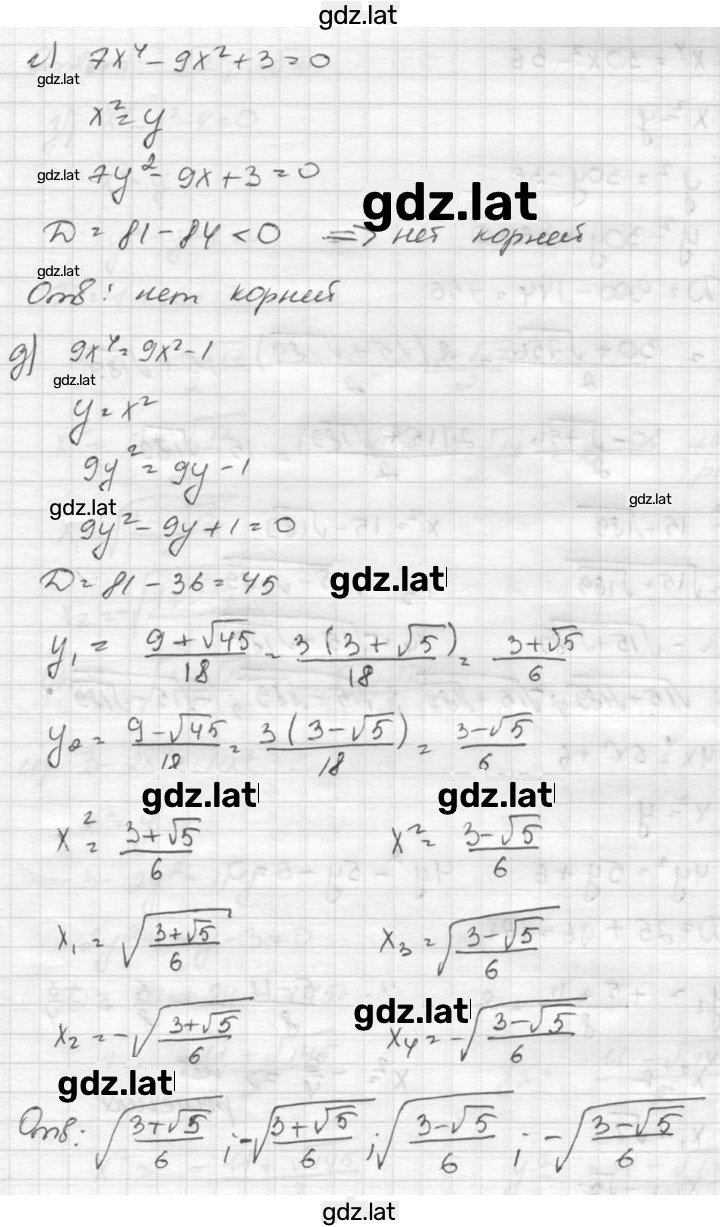 gdz.lat
г) 7x⁴ - 9x² + 3 = 0
gdz.lat
x² = y
gdz.lat 7y² - 9x + 3 = 0
gdz.lat
D = 81 - 84 < 0 => нет корней
gdz.lat
Отв: нет корней
д) 9x⁴ = 9x² - 1
gdz.lat
y = x²
9y² = 9y - 1
gdz.lat
gdz.lat
9y² - 9y + 1 = 0
D = 81 - 36 = 45 gdz.lat
y₁ = (9 + √45)/18 = 3(3 + √5)/18 = (3 + √5)/6
y₂ = (9 - √45)/18 = 3(3 - √5)/18 = (3 - √5)/6
gdz.lat gdz.lat
x² = (3 + √5)/6 x² = (3 - √5)/6
x₁ = √((3 + √5)/6) x₃ = √((3 - √5)/6)
gdz.lat
x₂ = -√((3 + √5)/6) x₄ = -√((3 - √5)/6)
gdz.lat
Отв: √((3 + √5)/6) ; -√((3 + √5)/6) ; √((3 - √5)/6) ; -√((3 - √5)/6)
gdz.lat